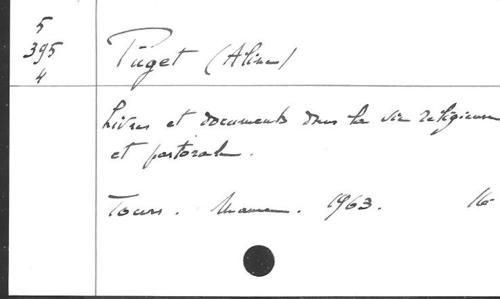 5
395
4
Puget (Aline)
Livres et documents dans la vie religieuse
et pastorale.
Tours. Mame. 1963. 16